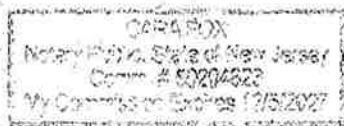 CARA FOX
Notary Public, State of New Jersey
Comm. # 50204823
My Commission Expires 12/5/2027